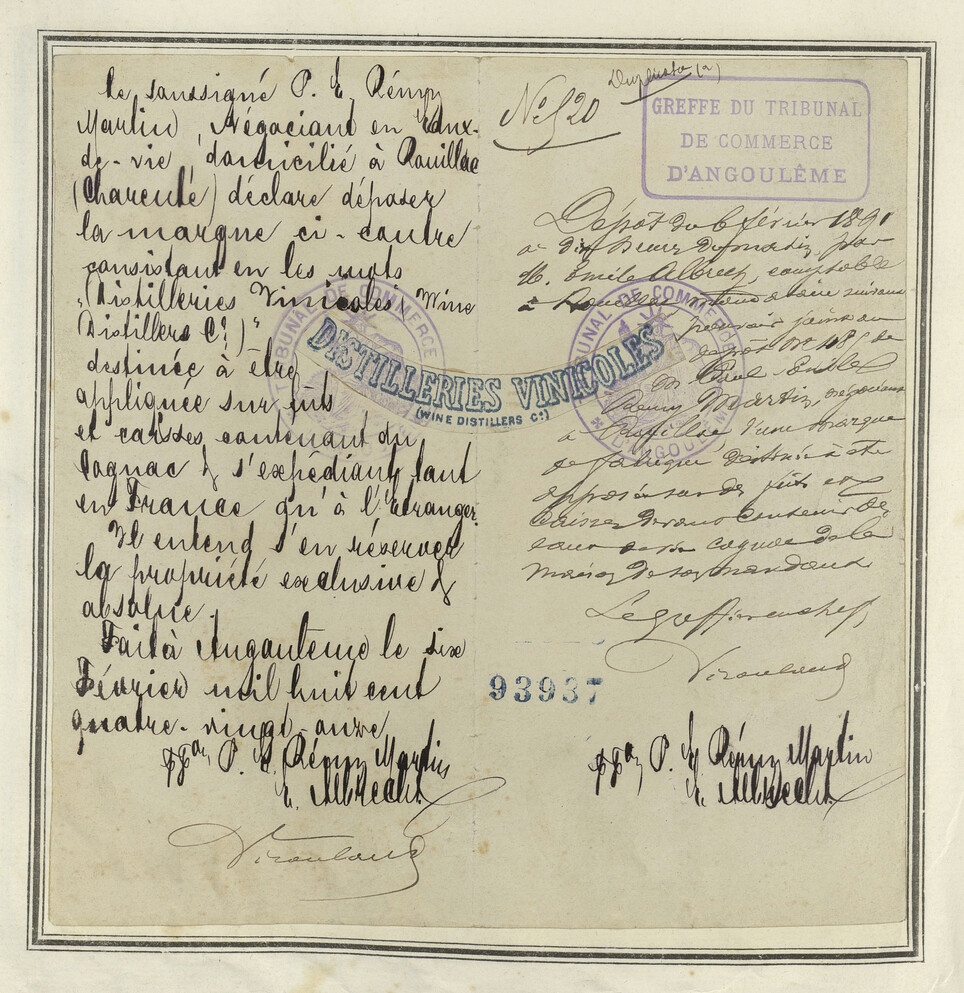 Le soussigné P. E. Rémy
Martin, Négociant en Eaux-
de-vie, domicilié à Rouillac
(Charente) déclare déposer
la marque ci-contre
consistant en les mots
"(Distilleries Vinicoles Wine
Distillers Co.)"
destinée à être
appliquée sur fûts
et caisses contenant du
Cognac & s'expédiant tant
en France qu'à l'Etranger.
Il entend s'en réserver
la propriété exclusive &
absolue.
Fait à Angoulême le six
Février mil huit cent
quatre-vingt-onze
ppon P. E. Rémy Martin
E. Albrecht
DISTILLERIES VINICOLES
(WINE DISTILLERS Co.)
TRIBUNAL DE COMMERCE
TRIBUNAL DE COMMERCE D'ANGOULÊME
Duplicata (2)
No 520
GREFFE DU TRIBUNAL
DE COMMERCE
D'ANGOULÊME
Dépôt du 6 février 1891
à dix heures du matin, par
M. Emile Albrecht, comptable
à Rouillac, mandataire suivant
pouvoir joint au
dépôt No de
M. Paul Emile
Remy Martin, négociant
à Rouillac d'une marque
de fabrique destinée à être
apposée sur des fûts et
caisses devant contenir des
eaux de vie cognac de la
maison de son mandant
Le greffier en chef,
93937
ppon P. E. Rémy Martin
E. Albrecht